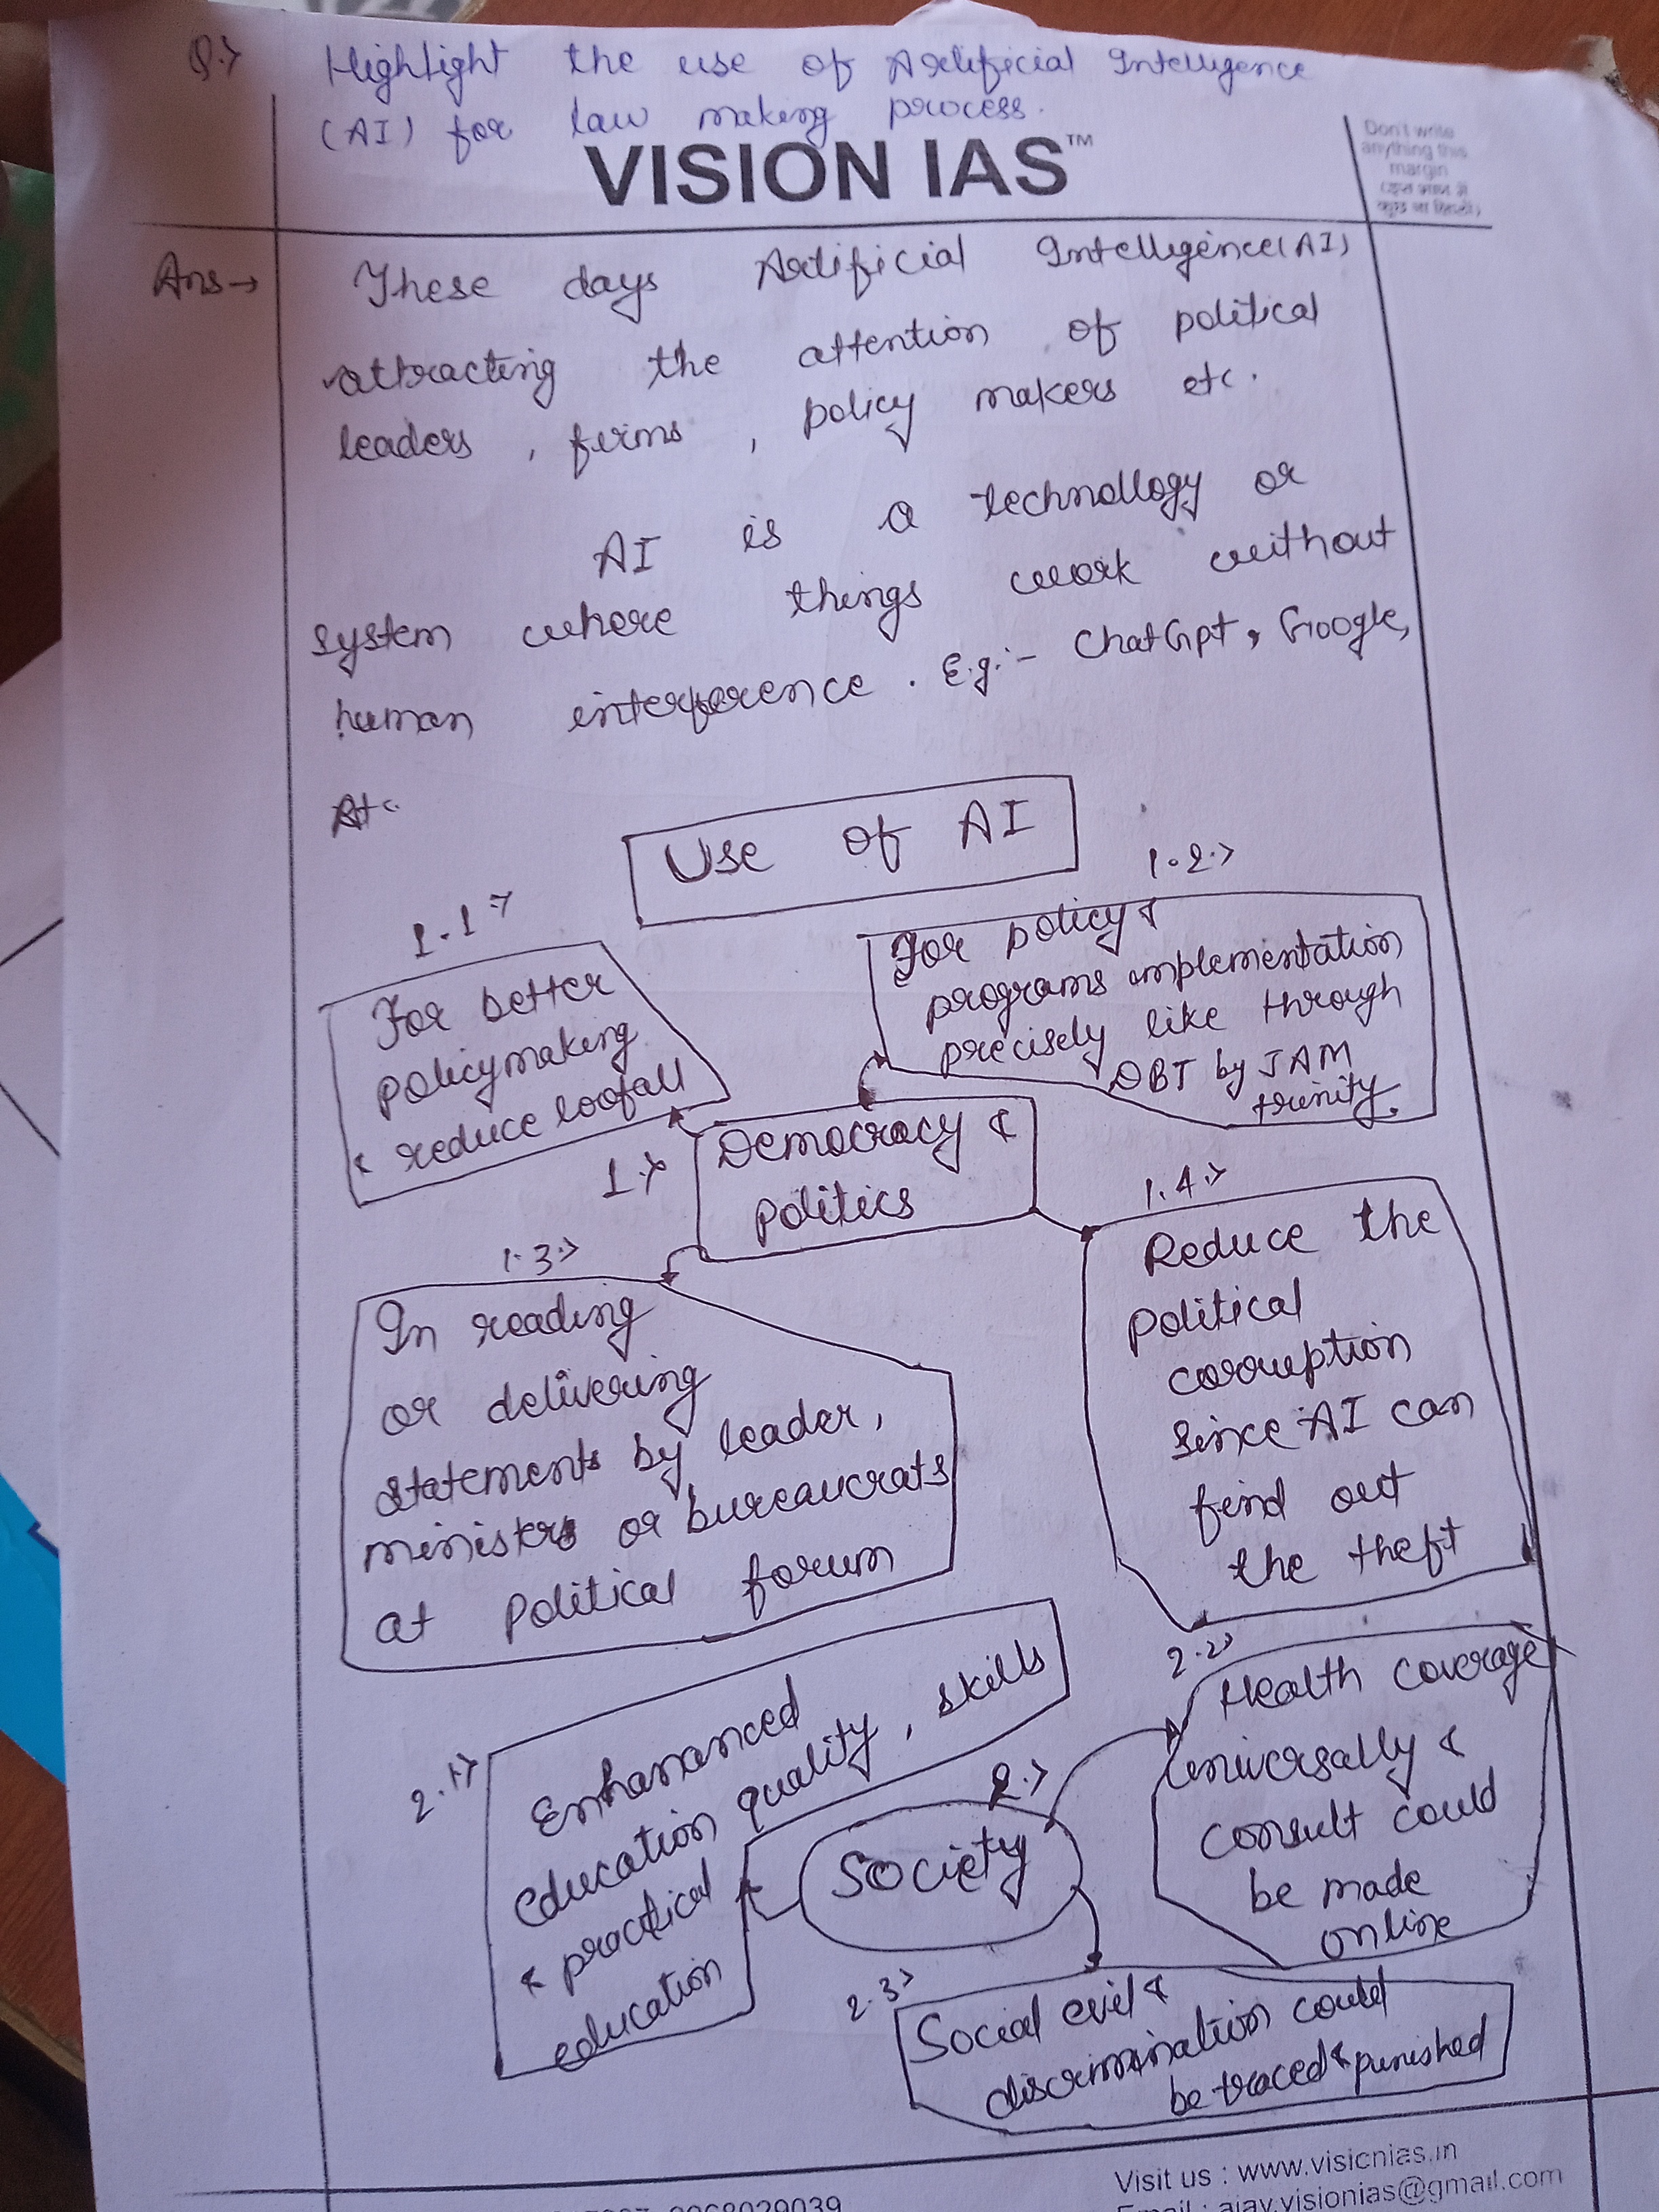 Q.> Highlight the use of Artificial Intelligence
(AI) for law making process.
VISION IAS™
Don't write
anything this
margin
(इस भाग में
कुछ ना लिखें)
Ans→ These days Artificial Intelligence(AI)
attracting the attention of political
leaders, firms, policy makers etc.
AI is a technollogy or
system where things work without
human interference. E.g:- ChatGpt, Google,
Use of AI
1.1>
For better
policymaking
& reduce loofall
1.2>
For policy &
programs implementation
precisely like through
DBT by JAM
trinity.
1.> Democracy &
politics
1.3>
In reading
or delivering
statements by leader,
ministers or bureaucrats
at political forum
1.4.>
Reduce the
political
corruption
since AI can
find out
the theft
2.1>
Enhananced
education quality, skills
& practical
education
2.>
Society
2.2>
Health coverage
universally &
consult could
be made
online
2.3>
Social evil &
discrimination could
be traced & punished
Visit us : www.visionias.in
Email : ajay.visionias@gmail.com
9968029039